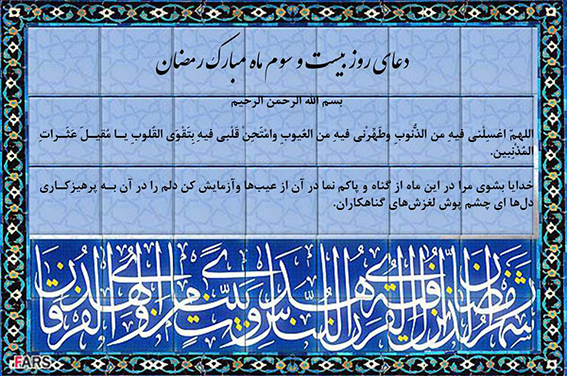 دعای روز بیست و سوم ماه مبارک رمضان
بسم الله الرحمن الرحیم
اللهمّ اغسِلْنی فیهِ من الذُّنوبِ وطَهِّرْنی فیهِ من العُیوبِ وامْتَحِنْ قَلْبی فیهِ بِتَقْوَی القُلوبِ یـا مُقیـلَ عَثَـراتِ
المُذْنِبین.
خدایا بشوی مرا در این ماه از گناه و پاکم نما در آن از عیب‌ها وآزمایش کن دلم را در آن بـه پرهیزکـاری
دل‌ها ای چشم پوش لغزش‌های گناهکاران.
شهر رمضان الذی انزل فیه القرآن هدی للناس و بینت من الهدی والفرقان
FARS